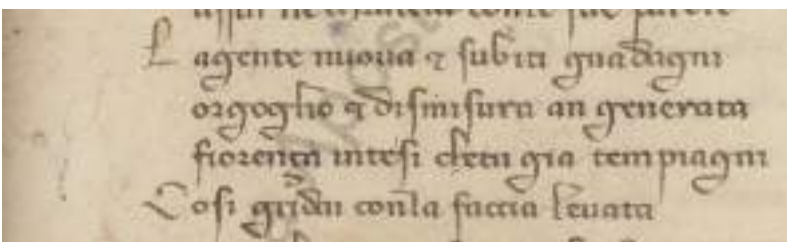 L agente nuoua & subiti guadagni
orgoglio & dismisura an generata
fiorença in te si che tu gia tem piagni
Cosi gridai con la faccia leuata